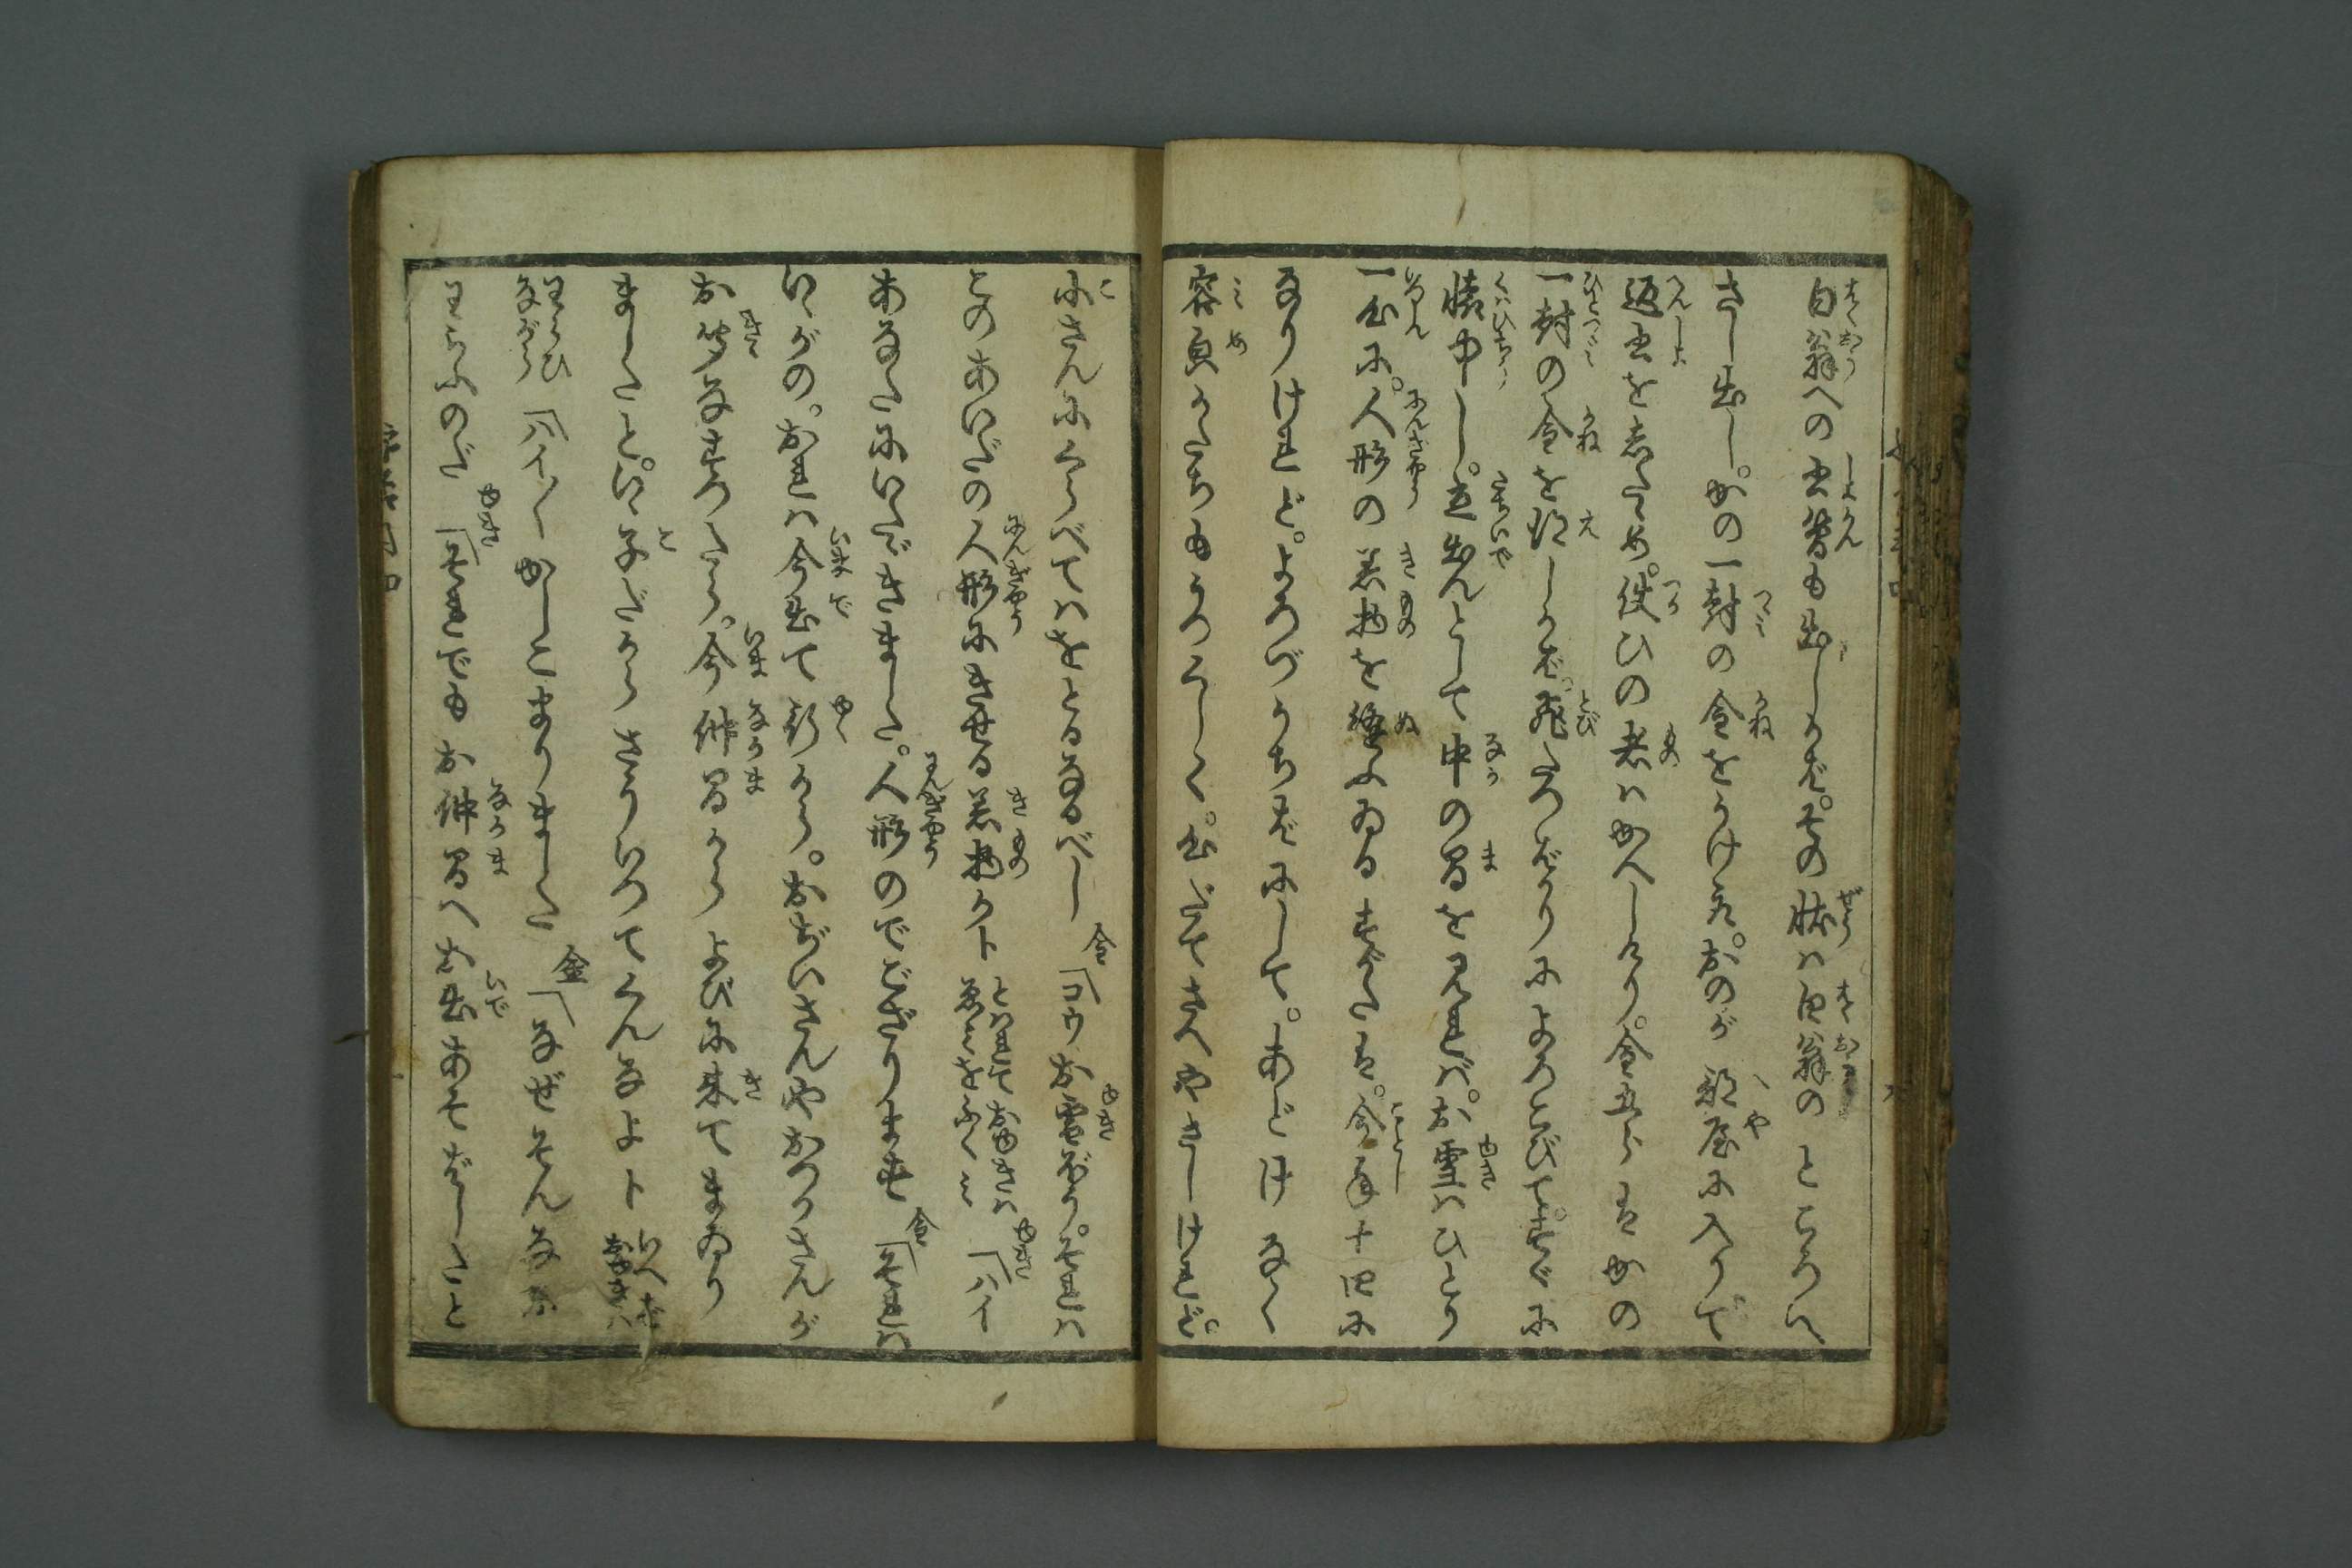 白翁への書翰も出しかば。その状は白翁のところへ
さし出し。かの一封の金をうけえ。おのが部屋に入りて
返書をしたゝめ。使ひの者はかへしけり。金五らはかの
一封の金を得しかば。飛たつばかりによろこびて。すぐに
懐中し。立出んとして中の間を見れば。お雪はひとり
一心に。人形の着物を縫ふゐるすがたは。今年十四に
なりけれど。よろづうちばにして。あどけなく
容貌かたちもうつくしく。心だてさへやさしけれど。
にさんにくらべてはをとるなるべし 金「コウお雪ばう。それは
このあいだの人形にきせる着物かト とはれておゆきはゑみをふくみ ゆき「ハイ
あなたにいたゞきました。人形のでござります 金「それは
いゝがの。おれは今出て行から。おぢいさんやおつかさんが
お聞なすつたら。今仲間からよびに来てまゐり
ましたと。いゝ子だからさういつてくんなよト いへばおゆきは
わらひながら 「ハイ〳〵かしこまりました 金「なぜそんなに
わらふのだ ゆき「それでもお仲間へお出あそばしたこと